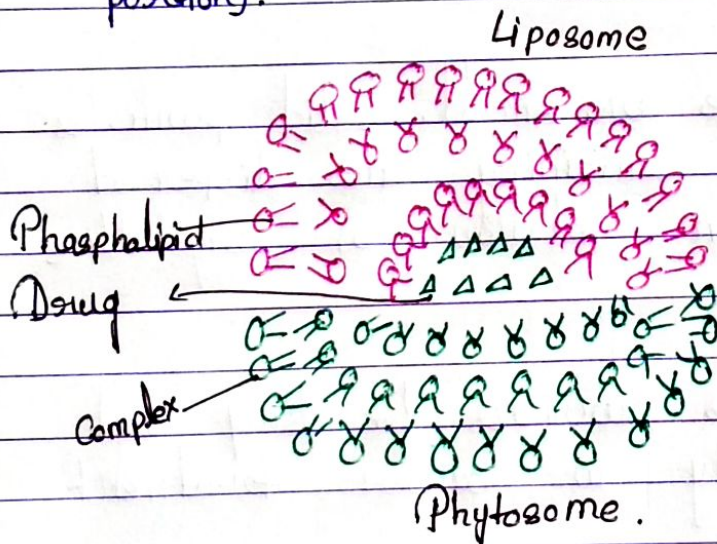 Liposome
Phospholipid
Drug
Complex
Phytosome.